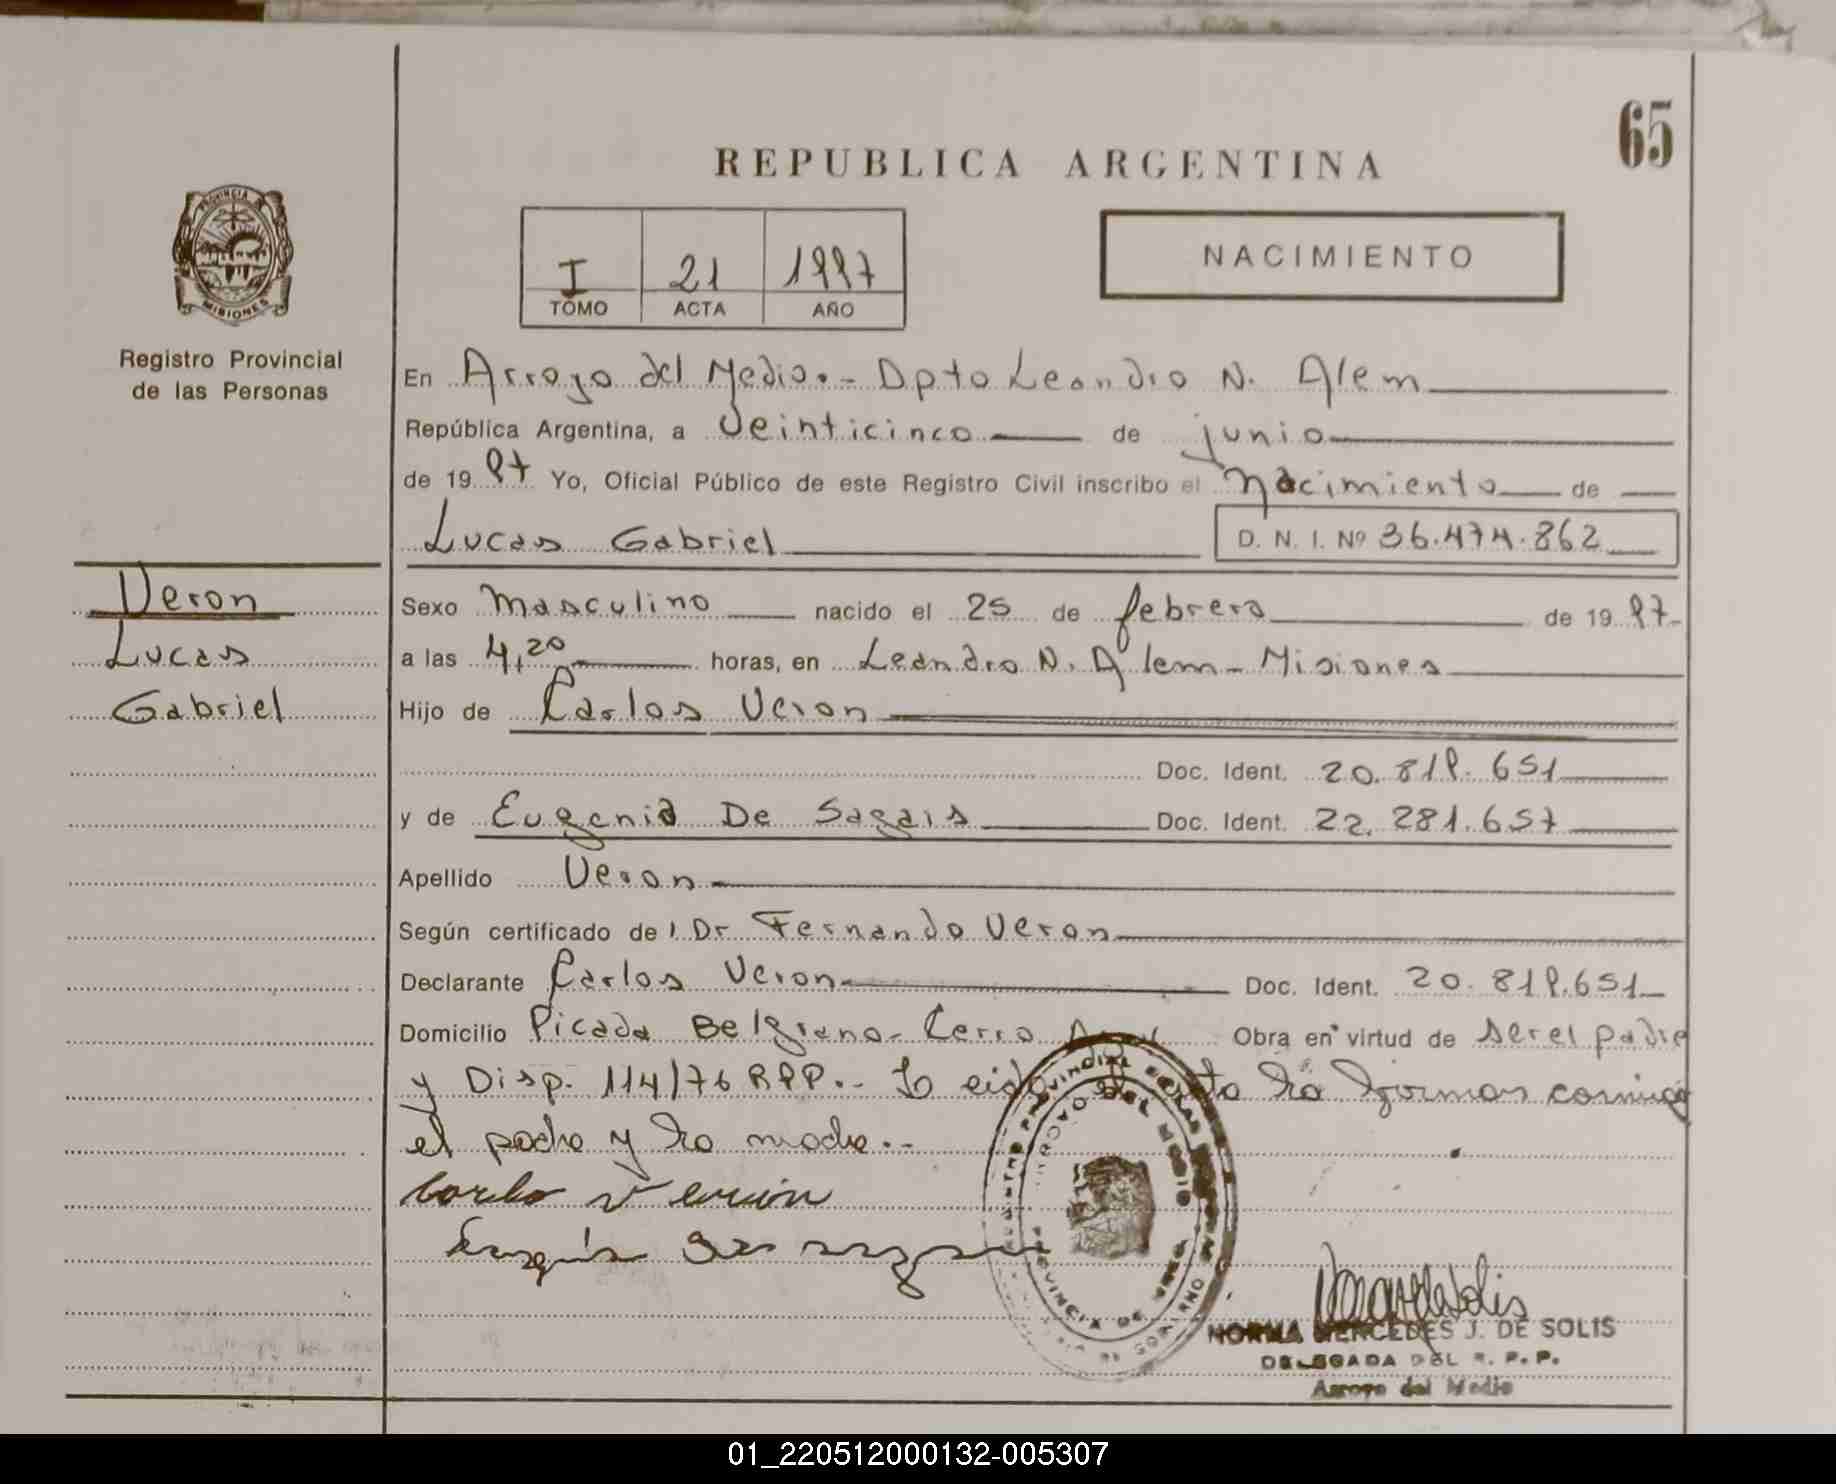 65
REPUBLICA ARGENTINA
PROVINCIA
MISIONES
I 21 1997
TOMO ACTA AÑO
NACIMIENTO
Registro Provincial
de las Personas
En Arroyo del Medio.- Dpto Leandro N. Alem
República Argentina, a Veinticinco de junio
de 1997 Yo, Oficial Público de este Registro Civil inscribo el nacimiento de
Lucas Gabriel D. N. I. Nº 36.474.862
Veron
Lucas
Gabriel
Sexo Masculino nacido el 25 de febrero de 1997-
a las 4,20 horas, en Leandro N. Alem - Misiones
Hijo de Carlos Veron
Doc. Ident. 20.819.651
y de Eugenia De Sagais Doc. Ident. 22.281.657
Apellido Veron
Según certificado de Dr Fernando Veron
Declarante Carlos Veron Doc. Ident. 20.819.651
Domicilio Picada Belgrano- Cerro Obra en virtud de ser el padre
y Disp. 114/76 RPP.- la firman conmigo
el padre y la madre.-
ARROYO DEL MEDIO
PROVINCIA DE
NORMA MERCEDES J. DE SOLIS
DELEGADA DEL R. P. P.
Arroyo del Medio
01_220512000132-005307